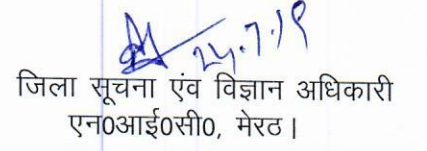 24.7.19
जिला सूचना एंव विज्ञान अधिकारी
एन0आई0सी0, मेरठ।